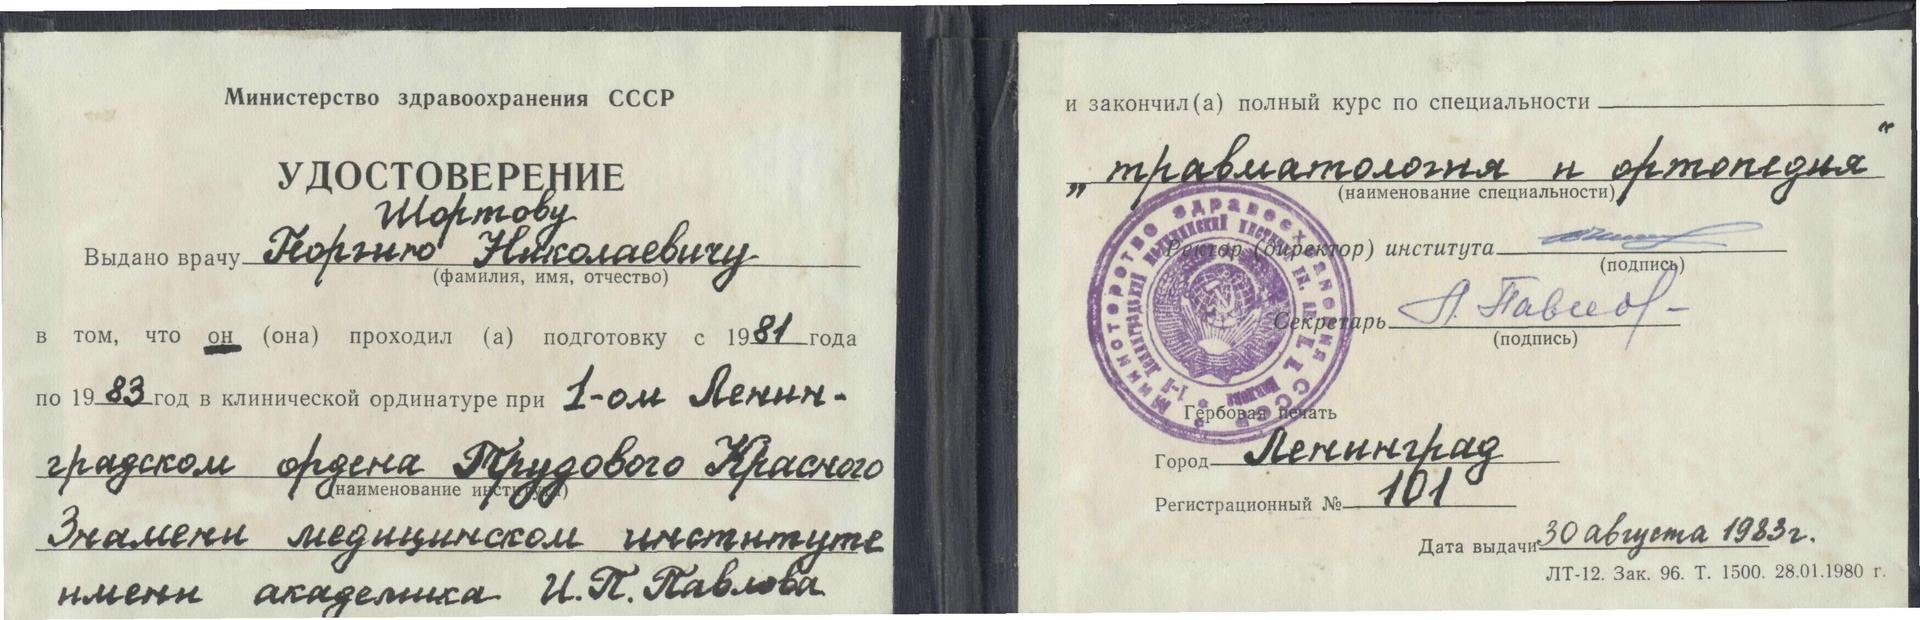 Министерство здравоохранения СССР
УДОСТОВЕРЕНИЕ
Шортову
Выдано врачу Георгию Николаевичу
(фамилия, имя, отчество)
в том, что он (она) проходил (а) подготовку с 1981 года
по 1983 год в клинической ординатуре при 1-ом Ленин-
градском ордена Трудового Красного
(наименование института)
Знамени медицинском институте
имени академика И.П. Павлова
и закончил(а) полный курс по специальности
„травматология и ортопедия“
(наименование специальности)
Ректор (директор) института
(подпись)
Секретарь А. Павлов
(подпись)
Министерство здравоохранения СССР
1-й Ленинградский медицинский институт им. ак. И. П. Павлова
Гербовая печать
Город Ленинград
Регистрационный № 101
Дата выдачи 30 августа 1983 г.
ЛТ-12. Зак. 96. Т. 1500. 28.01.1980 г.